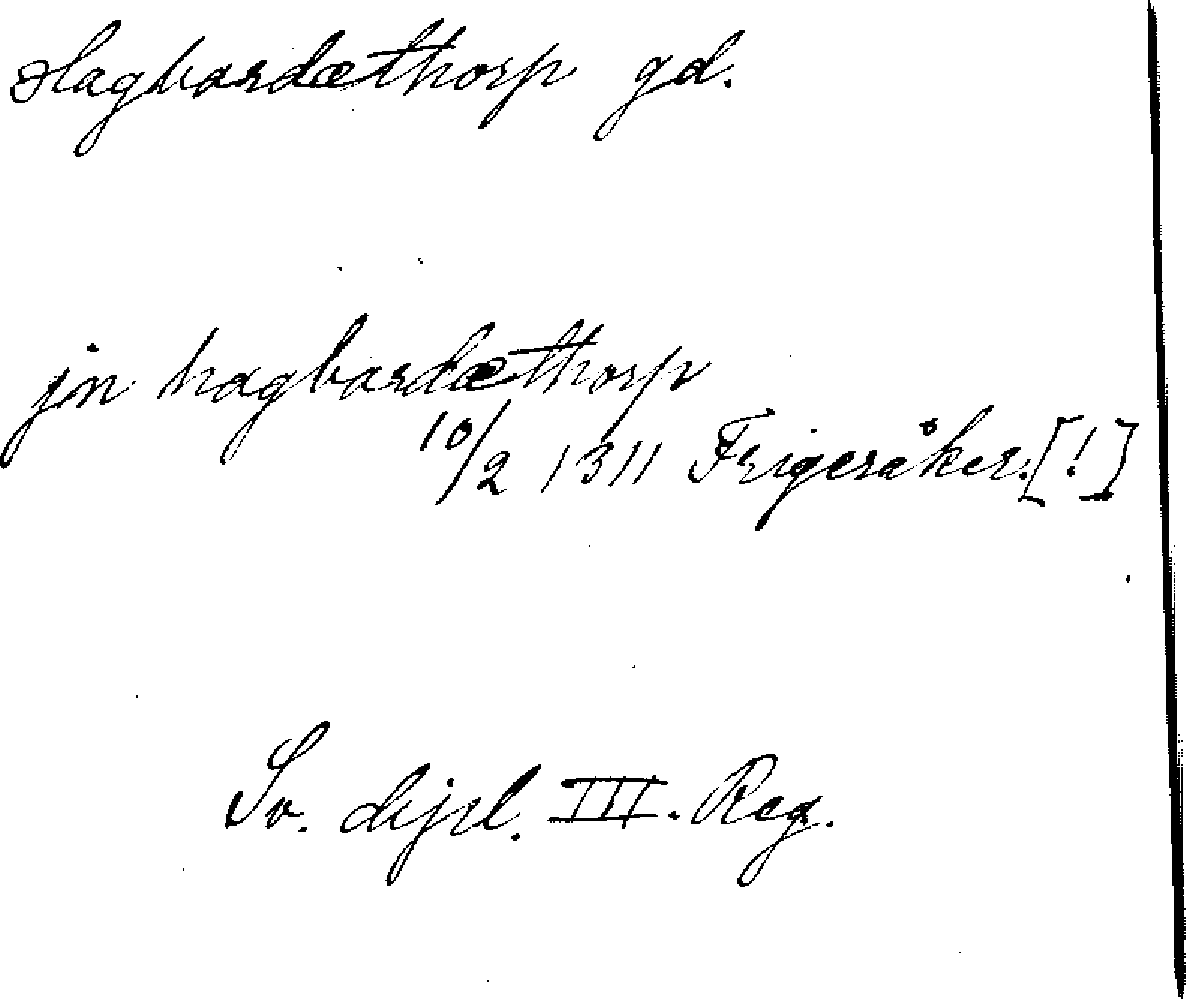 Hagbardæthorp gd.
jn hagbardæthorp
10/2 1311 Frigeråker.[!]
Sv. dipl. III. Reg.